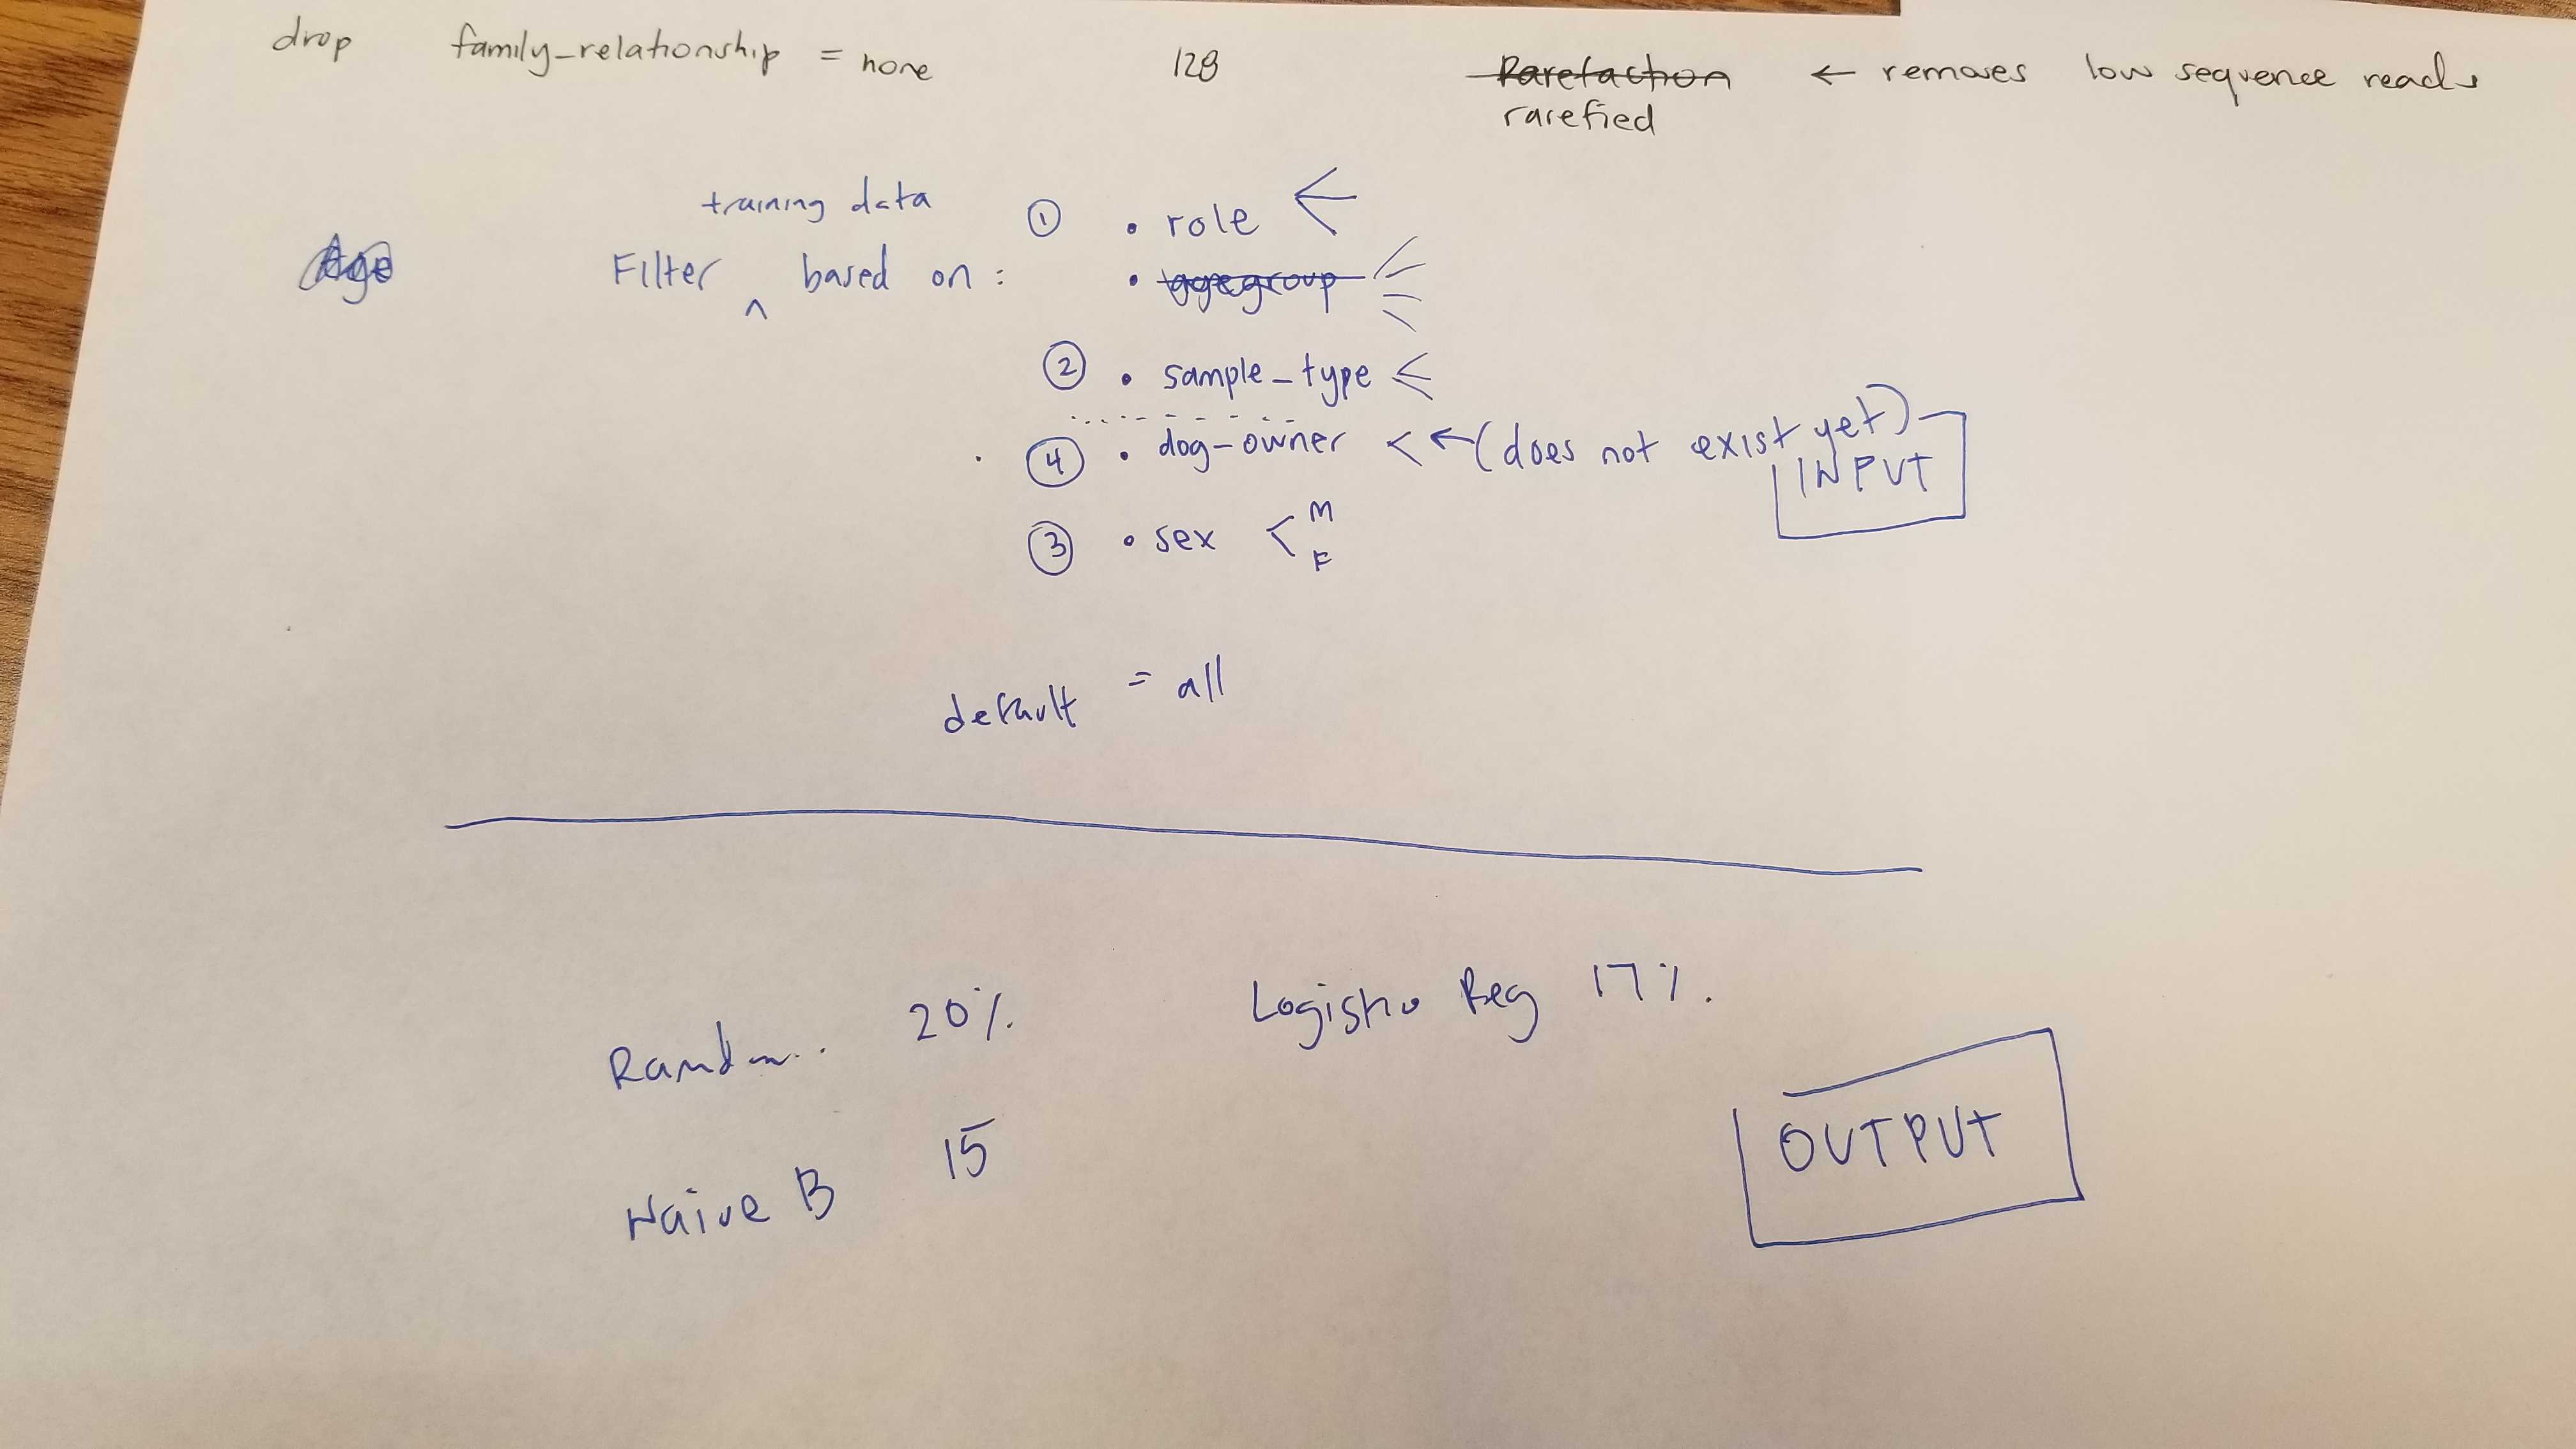 drop family_relationship = none 128 Rarefaction ← removes low sequence reads
rarefied
training data
Age Filter ^ based on :
① • role
• agegroup
② • sample_type
④ • dog-owner ← (does not exist yet)
INPUT
③ • sex < M
F
default = all
Random.. 20%
Logistic Reg 17%.
Naive B 15
OUTPUT